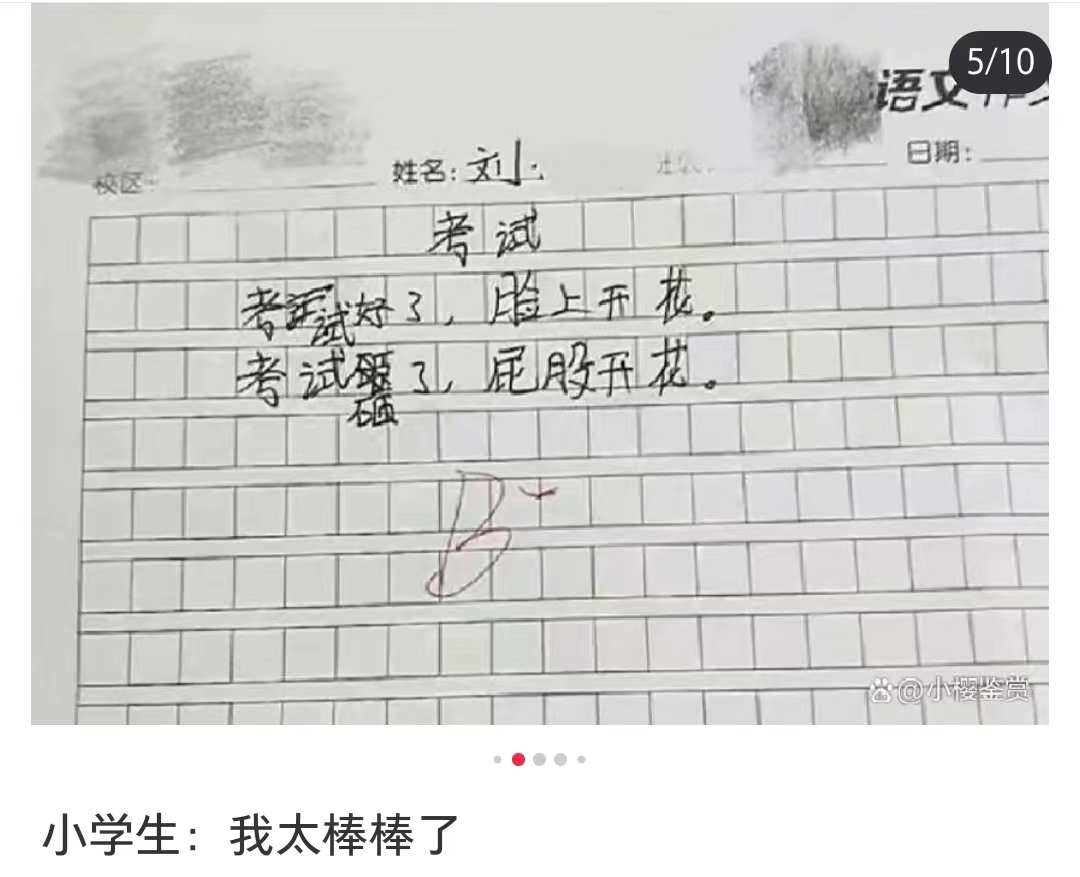 5/10
语文
校区: 姓名:刘小 日期:
考试
考试好了，脸上开花。
考试砸了，屁股开花。
B-
@小樱鉴赏
小学生：我太棒棒了